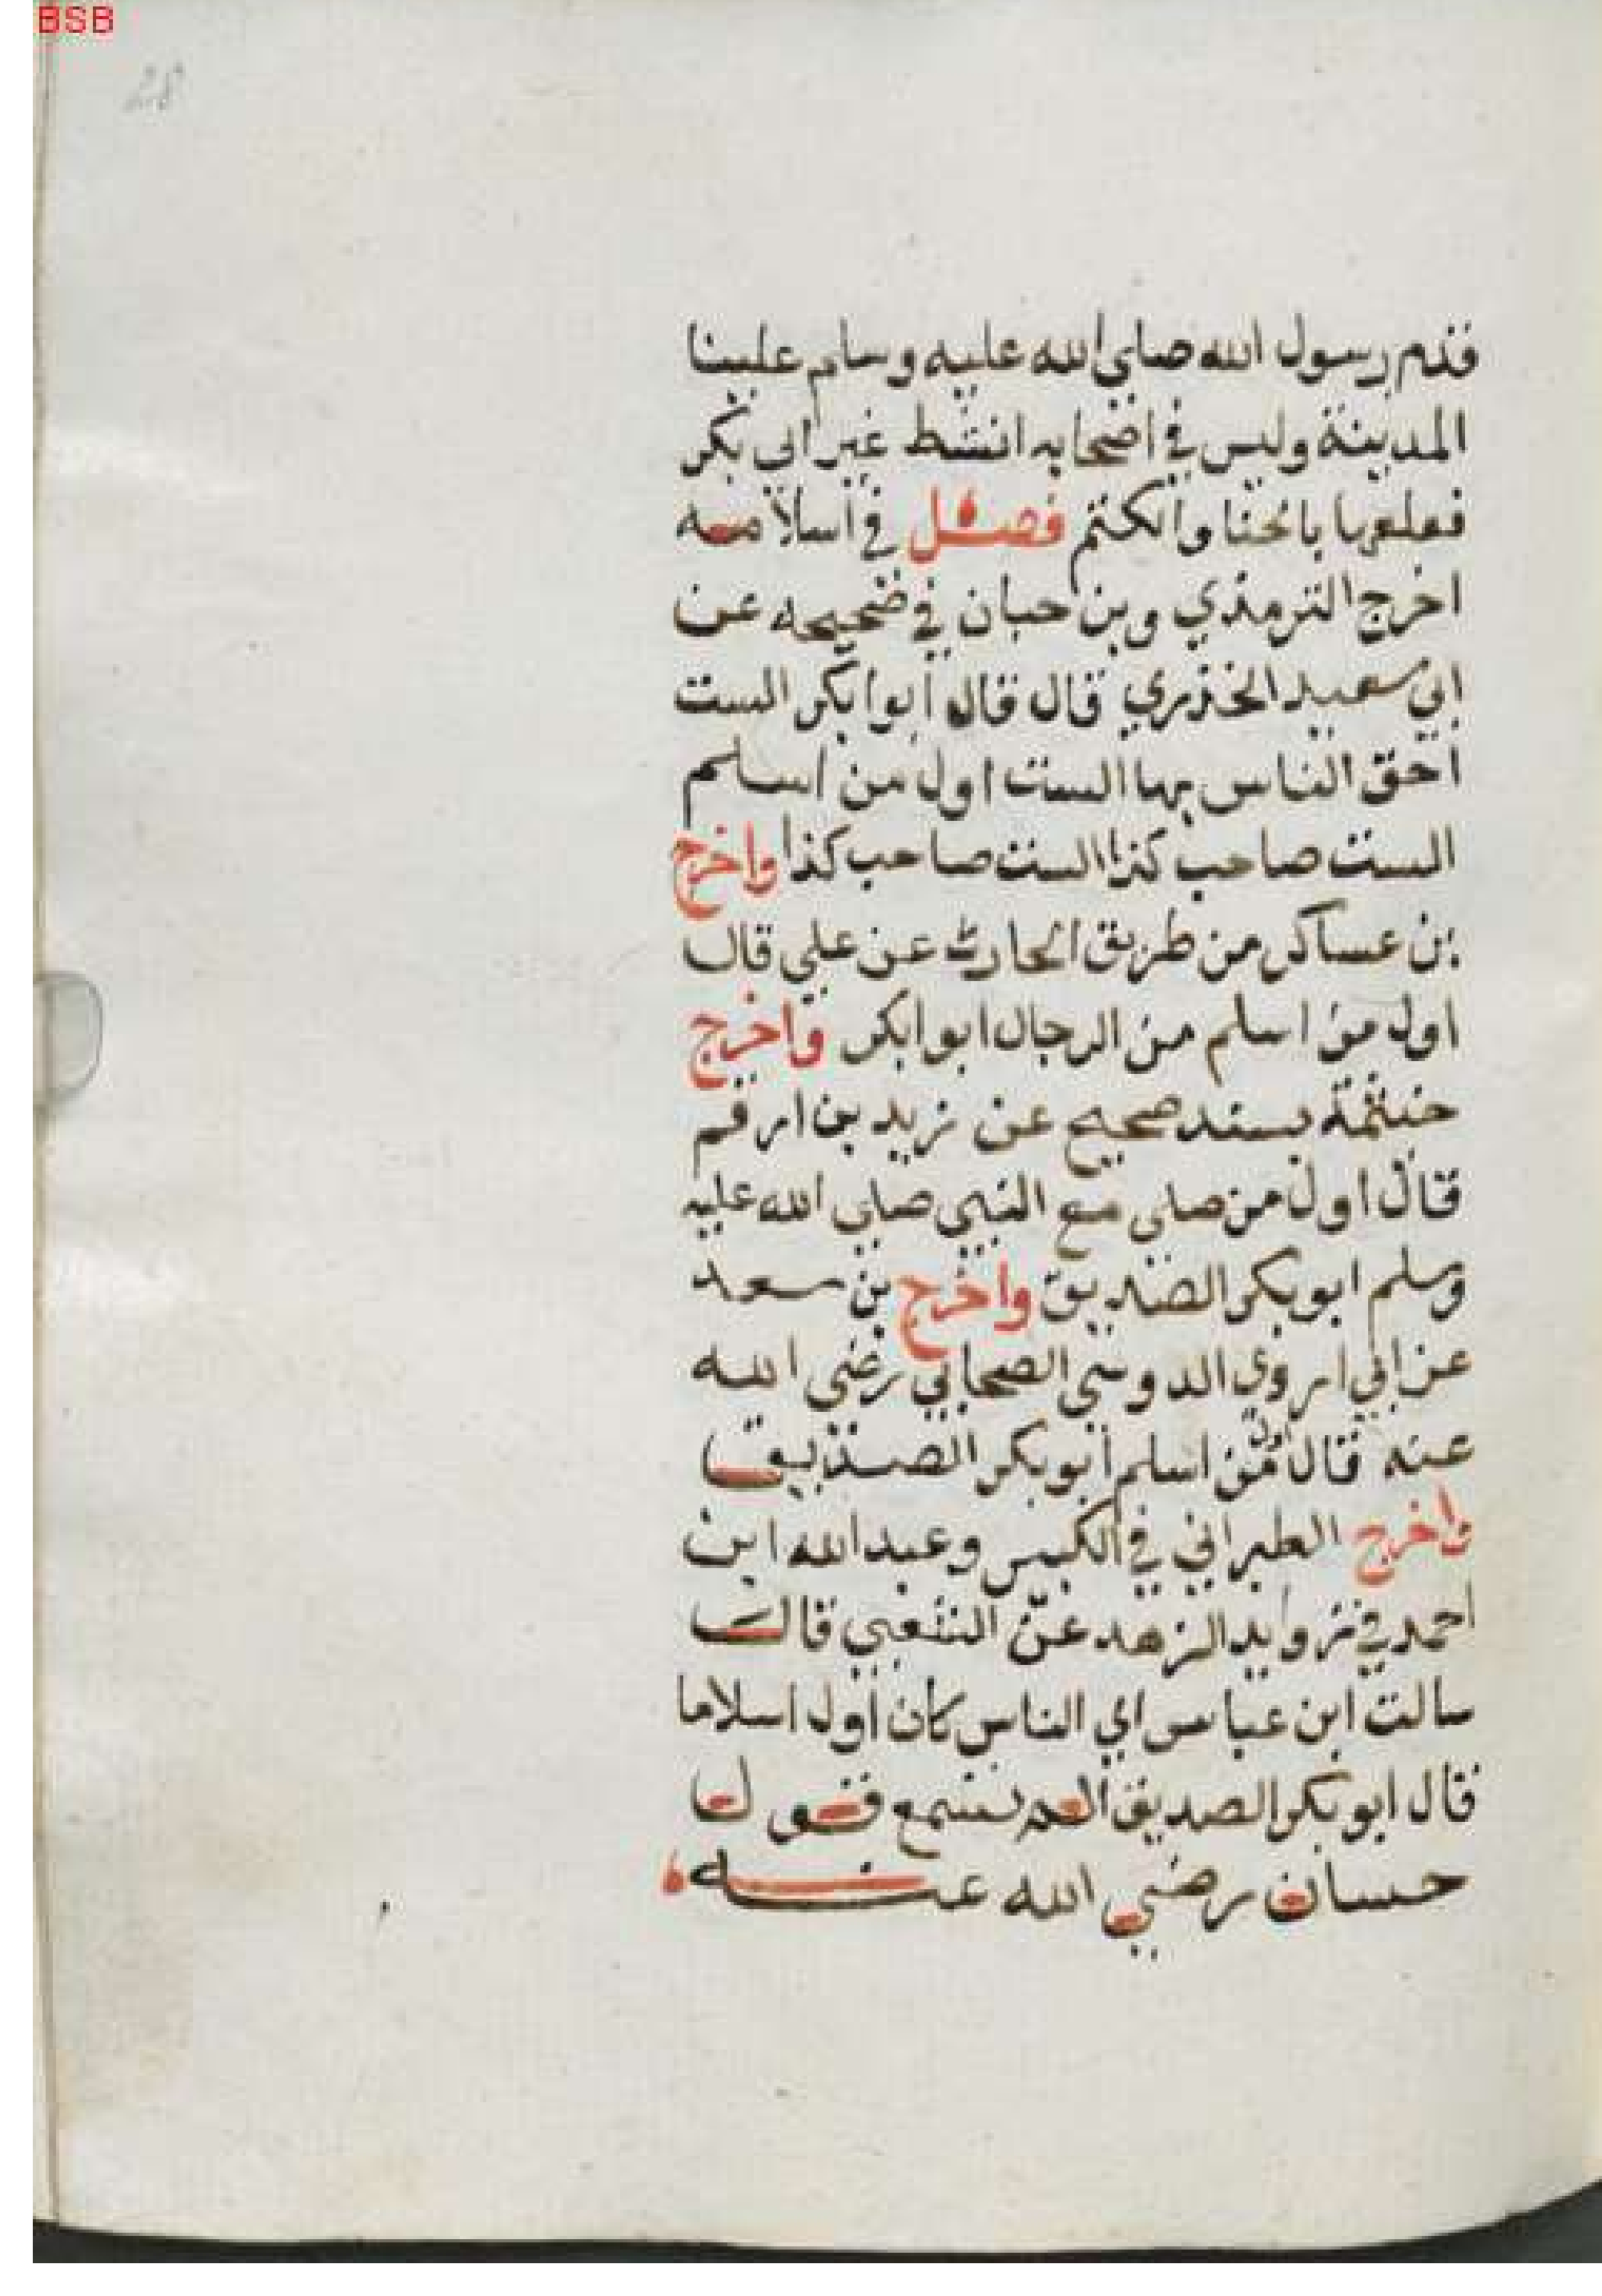 BSB
28
قدم رسول الله صلي الله عليه وسلم علينا
المدينة وليس في اصحابه اشمط غير ابي بكر
فعلعها بالحنا والكتم فصل في اسلامه
اخرج الترمذي وبن حبان في صحيحه عن
ابي سعيد الخذري قال قال ابوابكر الست
احق الناس بها الست اول من اسلم
الست صاحب كذا الست صاحب كذا واخرج
بن عساكر من طريق الحارث عن علي قال
اول من اسلم من الرجال ابوابكر واخرج
خيثمة بسند صحيح عن زيد بن ارقم
قال اول من صلى مع النبي صلي الله عليه
وسلم ابوبكر الصديق واخرج بن سعد
عن ابي اروي الدوسي الصحابي رضي الله
عنه قال اول من اسلم ابوبكر الصديق
واخرج الطبراني في الكبير وعبد الله ابن
احمد في زوايد الزهد عن الشعبي قال
سالت ابن عباس اي الناس كان اول اسلاما
قال ابو بكر الصديق الم تسمع قول
حسان رضي الله عنه